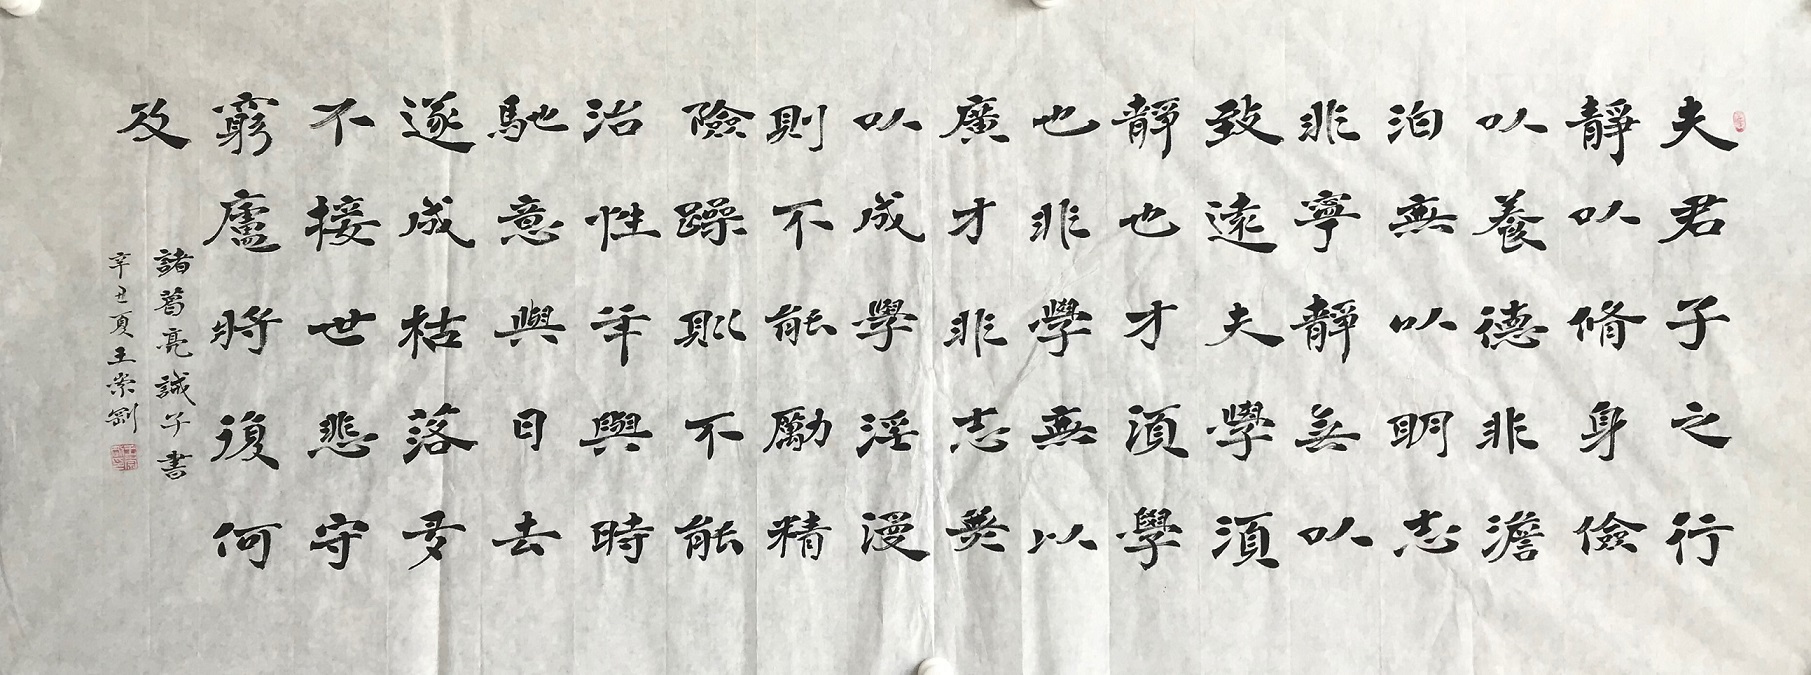 夫君子之行
靜以脩身儉
以養德非澹
泊無以明志
非寧靜無以
致遠夫學須
靜也才須學
也非學無以
廣才非志無
以成學淫漫
則不能勵精
險躁則不能
治性年與時
馳意與日去
遂成枯落多
不接世悲守
窮廬將復何
及
諸葛亮誡子書
辛丑夏王崇剛